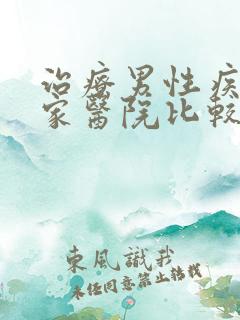 治療男性疾
家醫院比較
東風識我
未經同意禁止轉載